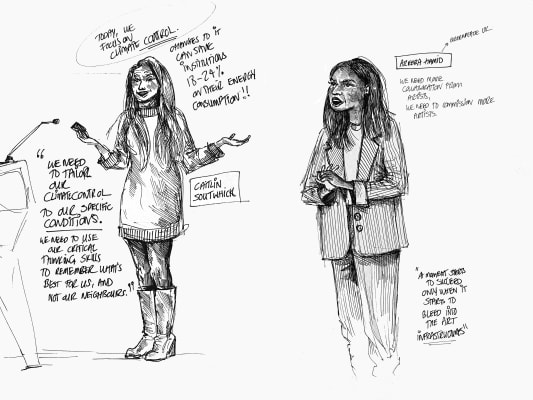 TODAY, WE
FOCUS ON
CLIMATE CONTROL.
CHANGES TO IT
CAN SAVE
INSTITUTIONS
18-24%
ON THEIR ENERGY
CONSUMPTION!!
"WE NEED
TO TAILOR
OUR
CLIMATE CONTROL
TO OUR SPECIFIC
CONDITIONS.
WE NEED TO USE
OUR CRITICAL
THINKING SKILLS
TO REMEMBER WHAT'S
BEST FOR US, AND
NOT OUR NEIGHBOURS."
CAITLIN
SOUTHWICK
GREENPEACE UK.
HAMID
WE NEED MORE
COLLABORATION FROM
ARTISTS,
WE NEED TO COMMISSION MORE
ARTISTS
"A MOMENT STARTS
TO SUCCEED
ONLY WHEN IT
STARTS TO
BLEED INTO
THE ART
INFRASTRUCTURES"